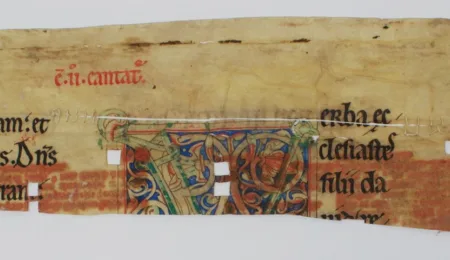 c̄. ii. cantat᷒.
am: et
s. Dn̄s
ran
erba ec
clesiaste᷒
filii da